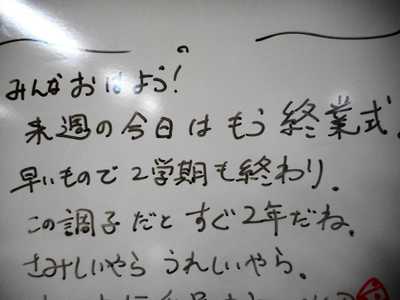 みんなおはよう!
来週の今日はもう終業式。
早いもので2学期も終わり。
この調子だとすぐ2年だね。
さみしいやらうれしいやら。